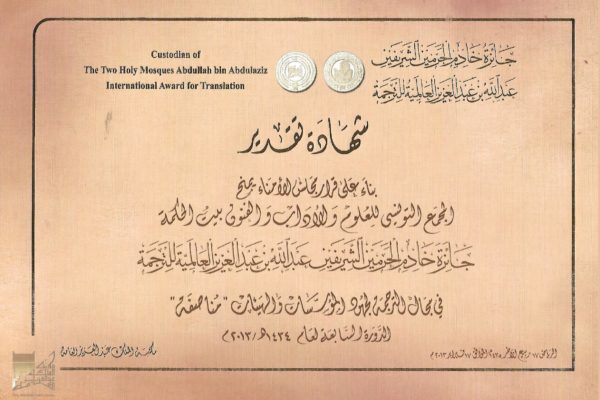 Custodian of
The Two Holy Mosques Abdullah bin Abdulaziz
International Award for Translation
جائزة خادم الحرمين الشريفين
عبدالله بن عبدالعزيز العالمية للترجمة
شهادة تقدير
بناء على قرار مجلس الأمناء بمنح
المجمع التونسي للعلوم والآداب والفنون بيت الحكمة
جائزة خادم الحرمين الشريفين عبدالله بن عبدالعزيز العالمية للترجمة
في مجال الترجمة لجهود المؤسسات والهيئات "مناصفة"
الدورة السابعة لعام ١٤٣٤هـ/٢٠١٣م
مكتبة الملك عبدالعزيز العامة